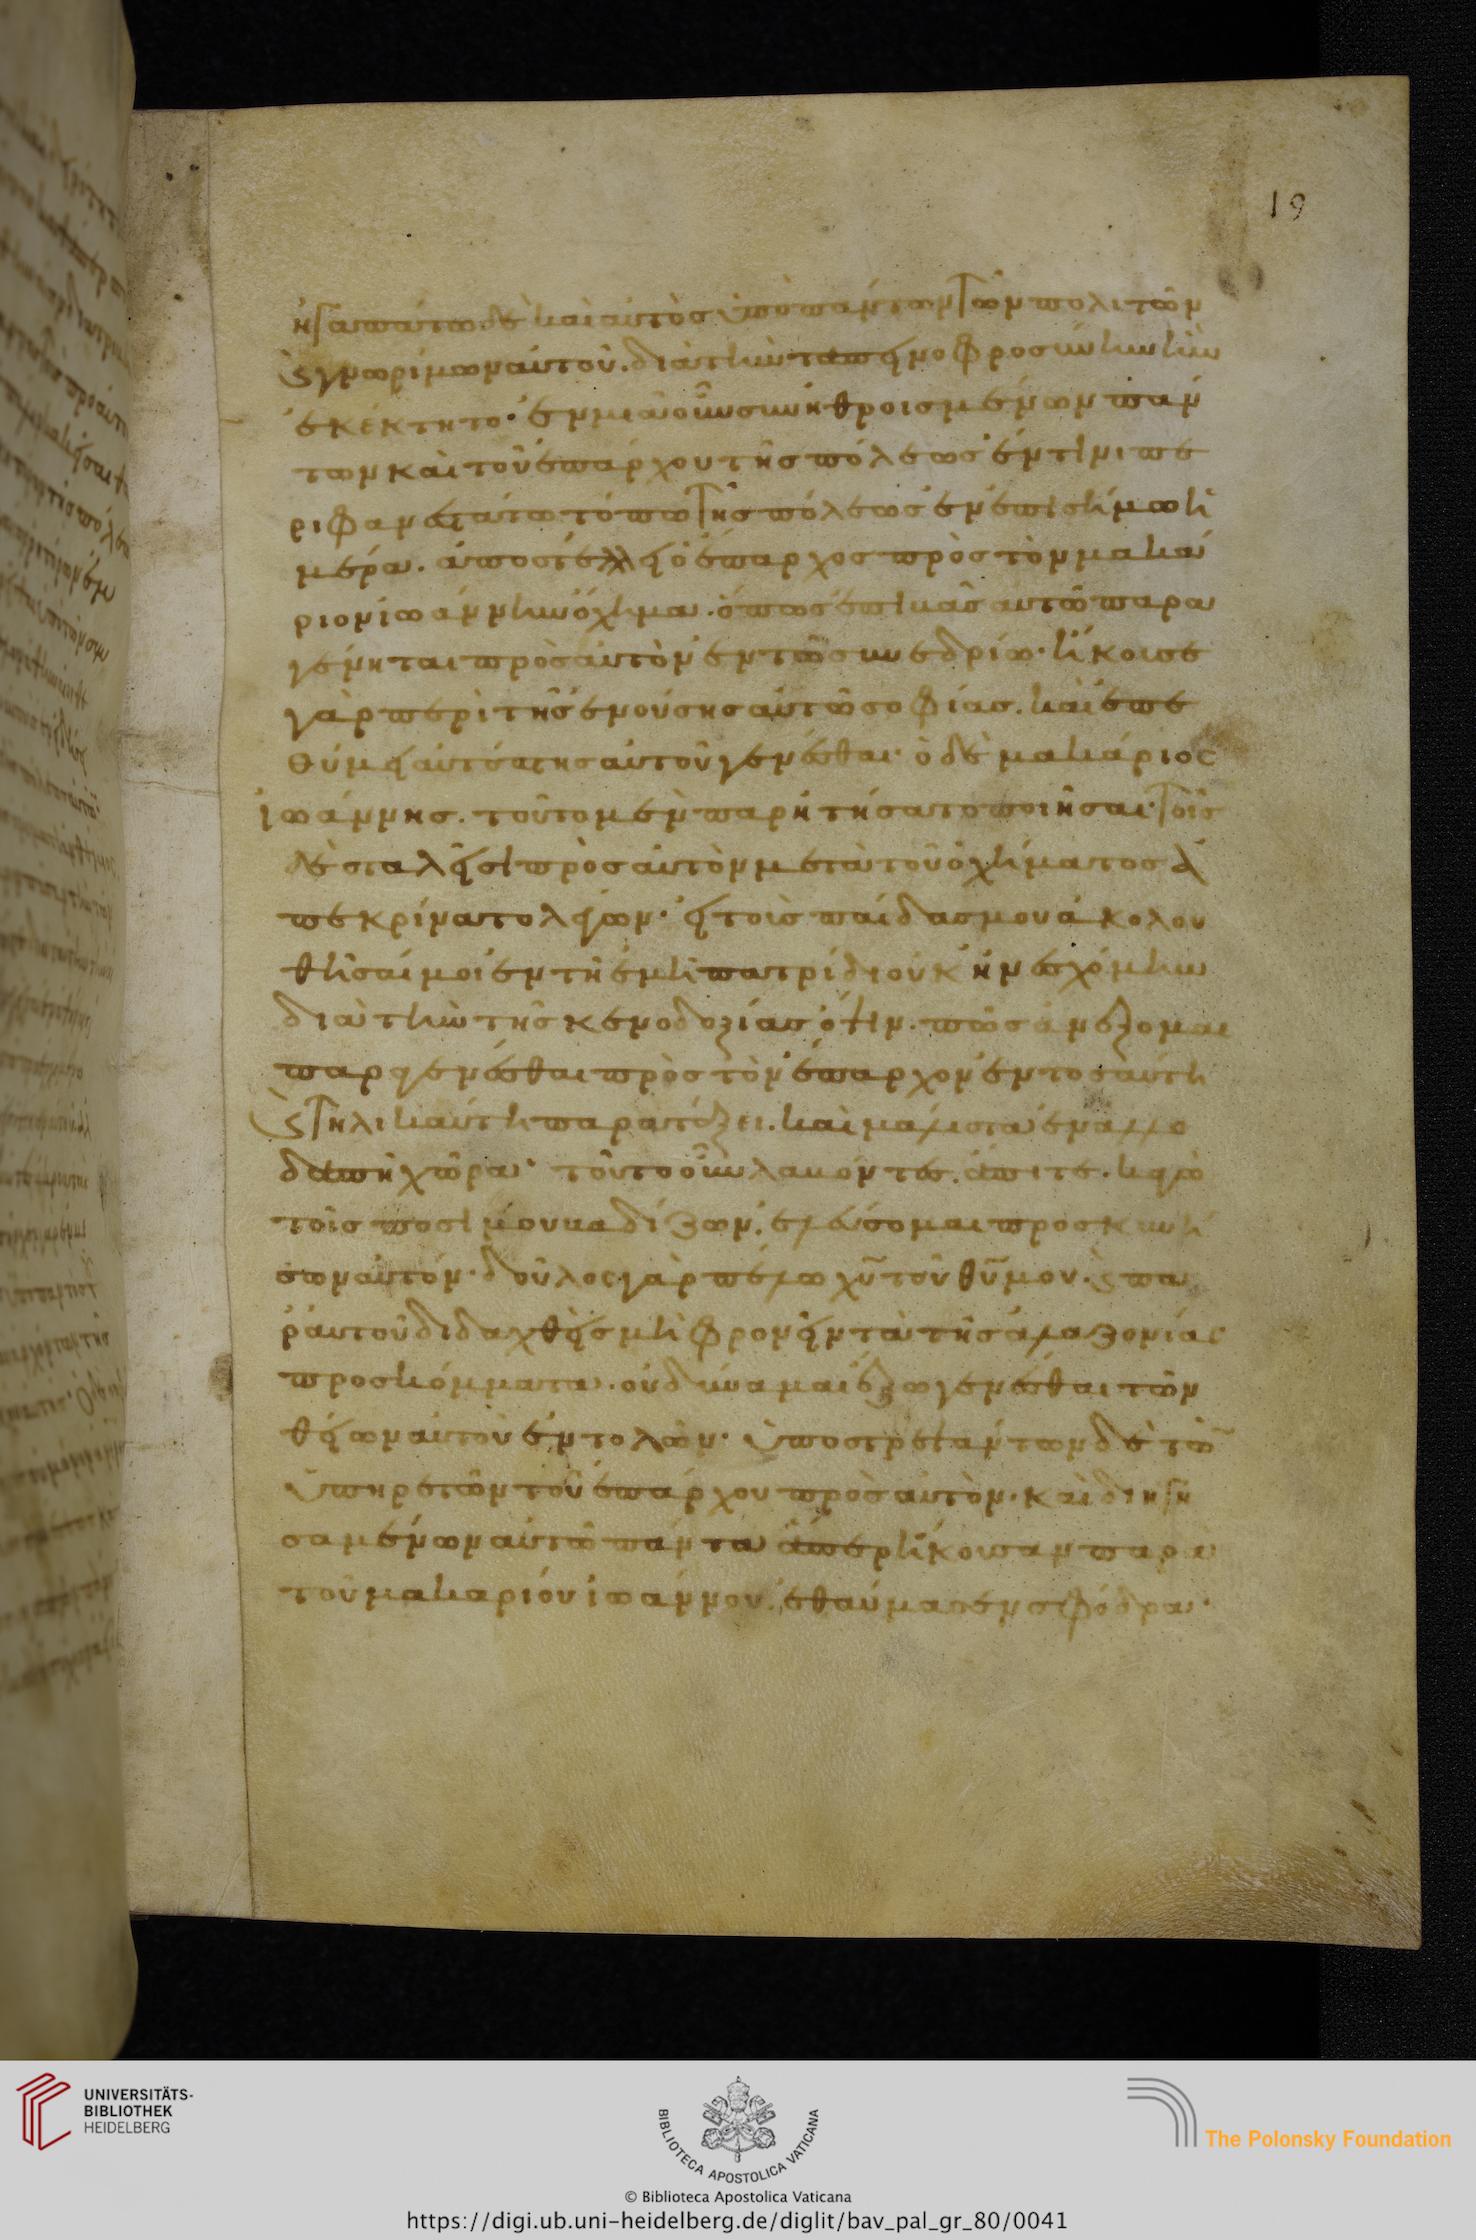 19
ἠγαπάτω δὲ καὶ αὐτὸς ὑπὸ πάντων τῶν πολιτῶν
ϗ γνωρίμων αὐτοῦ. διὰ τὴν ταπεινοφροσύνην ἣν
ἐκέκτητο· ἐν μιᾶ οὖν συνηθροισμένων πάν
των καὶ τοῦ ἐπάρχου τῆς πόλεως ἔν τινι πε
ριφανεστάτω τόπω τῆς πόλεως ἐν ἐπισήμω ἡ
μέρα. ἀποστέλλει ὁ ἔπαρχος πρὸς τὸν μακά
ριον ἰωάννην ὄχημα. ὅπως ἐπικαθ αὐτῶ παρα
γένηται πρὸς αὐτὸν ἐν τῶ συνεδρίω· ἤκουσε
γὰρ περὶ τῆς ἐνούσης αὐτῶ σοφίας. καὶ ἐπε
θύμει αὐτόπτης αὐτοῦ γενέσθαι· ὁ δὲ μακάριος
ἰωάννης. τοῦτο μὲν παρητήσατο ποιῆσαι· τοῖς
δὲ σταλεῖσι πρὸς αὐτὸν μετὰ τοῦ ὀχήματος ἀ
πεκρίνατο λέγων· εἰ τοὺς παίδας μου ἀκολου
θῆσαί μοι ἐν τῆ ἐμῆ πατρίδι οὐκ ἠνεσχόμην
διὰ τὴν τῆς κενοδοξίας ὄτην. πῶς ἀνέξομαι
παργενέσθαι πρὸς τὸν ἔπαρχον ἐν τοσαύτη
ϗ τηλικαύτη παρατάξει. καὶ μάλιστα ἐν ἀλλο
δαπῆ χώρα· τοῦτο οὖν λαβόντες. ἄπιτε. κἀγὼ
τοῖς ποσί μου βαδίζων. ἐλεύσομαι προσκυνή
σων αὐτόν· δοῦλος γὰρ πέλω χῦ τοῦ θῦ μου. ϗ πα
ρ' αὐτοῦ διδαχθεὶς μὴ φρονεῖν τὰ τῆς ἀλαζονίας
προσκόμματα. οὐ δύναμαι ἔξω γενέσθαι τῶν
θείων αὐτοῦ ἐντολῶν· ὑποστρεψάντων δὲ τῶ
ὑπηρετῶν τοῦ ἐπάρχου πρὸς αὐτὸν. καὶ διηγη
σαμένων αὐτῶ πάντα ἅπερ ἤκουσαν παρὰ
τοῦ μακαρίου ἰωάννου. ἐθαύμασεν σφόδρα·
UNIVERSITÄTS-
BIBLIOTHEK
HEIDELBERG
BIBLIOTECA APOSTOLICA VATICANA
The Polonsky Foundation
© Biblioteca Apostolica Vaticana
https://digi.ub.uni-heidelberg.de/diglit/bav_pal_gr_80/0041